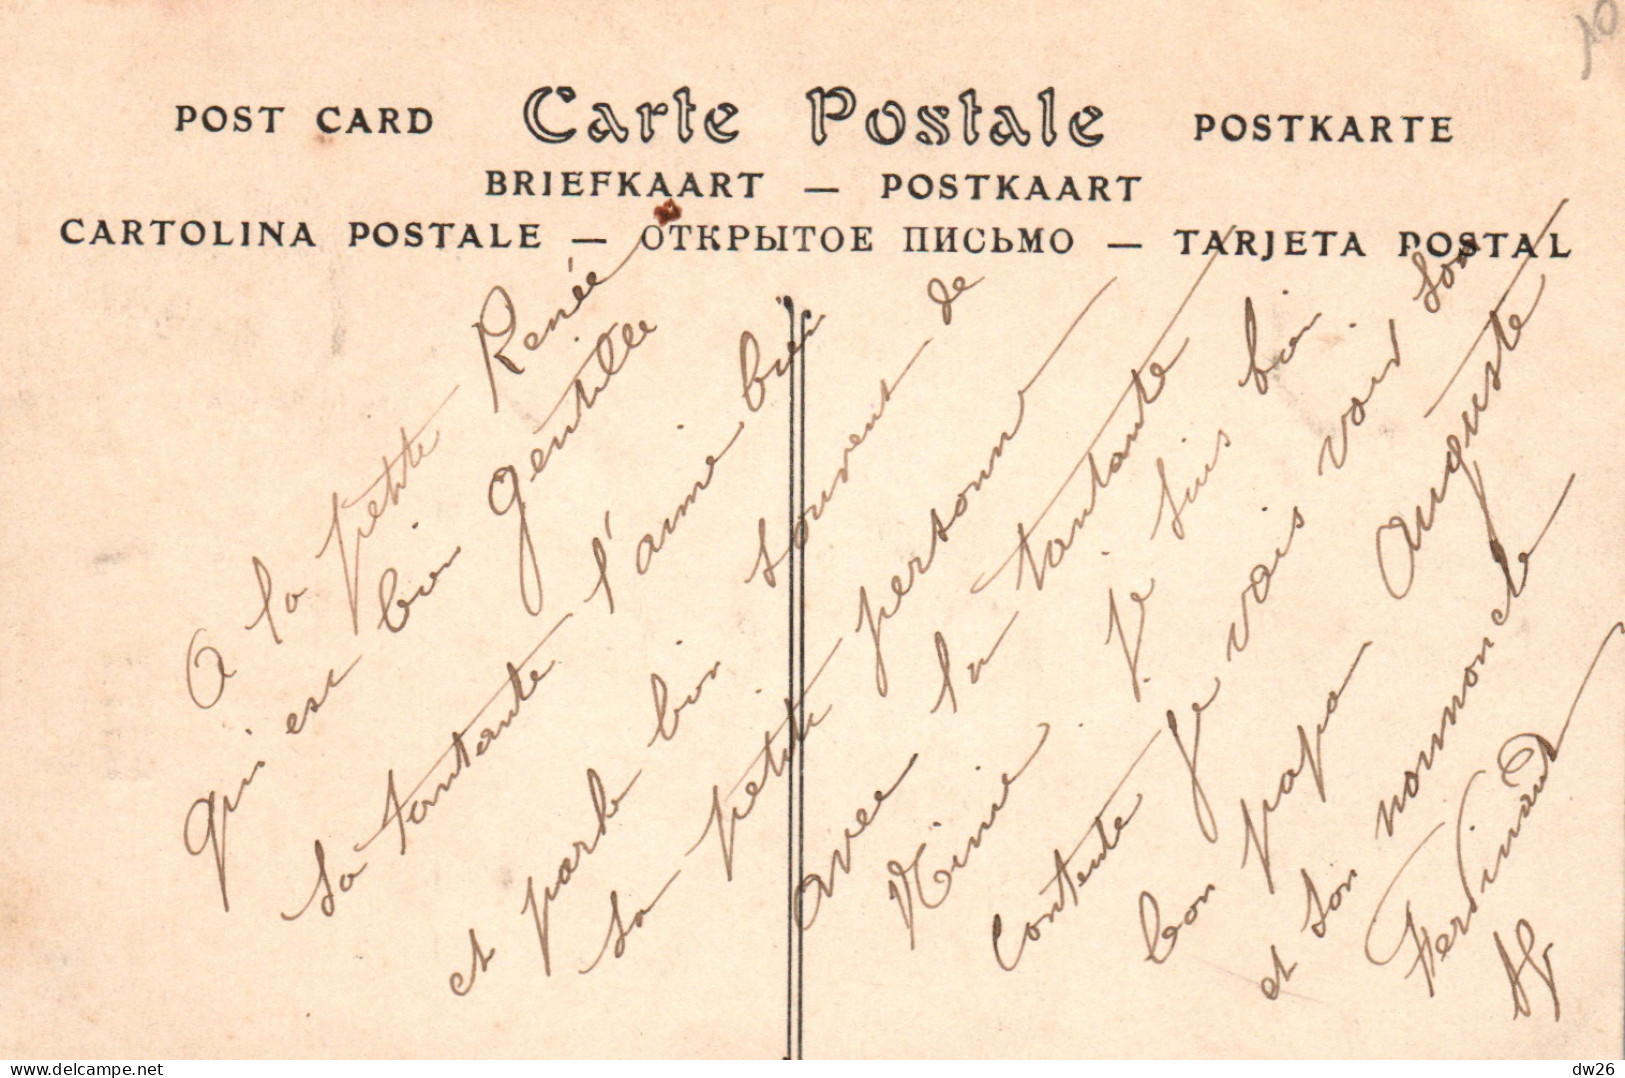 10
POST CARD Carte Postale POSTKARTE
BRIEFKAART — POSTKAART
CARTOLINA POSTALE — ОТКРЫТОЕ ПИСЬМО — TARJETA POSTAL
A la petite Renée
qui est bien gentille
sa tantante l'aime bien
et parle bien souvent de
sa petite personne
avec la tantante
Nine. Je suis bien
contente je vais voir son
bon papa Auguste
et son nomnoncle
Ferdinand
dw26